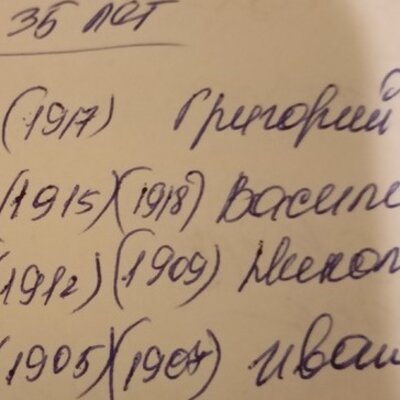 35 лет
(1917) Григорий
(1915)(1918) Васили
(1912)(1909) Никол
(1905)(1907) Иван